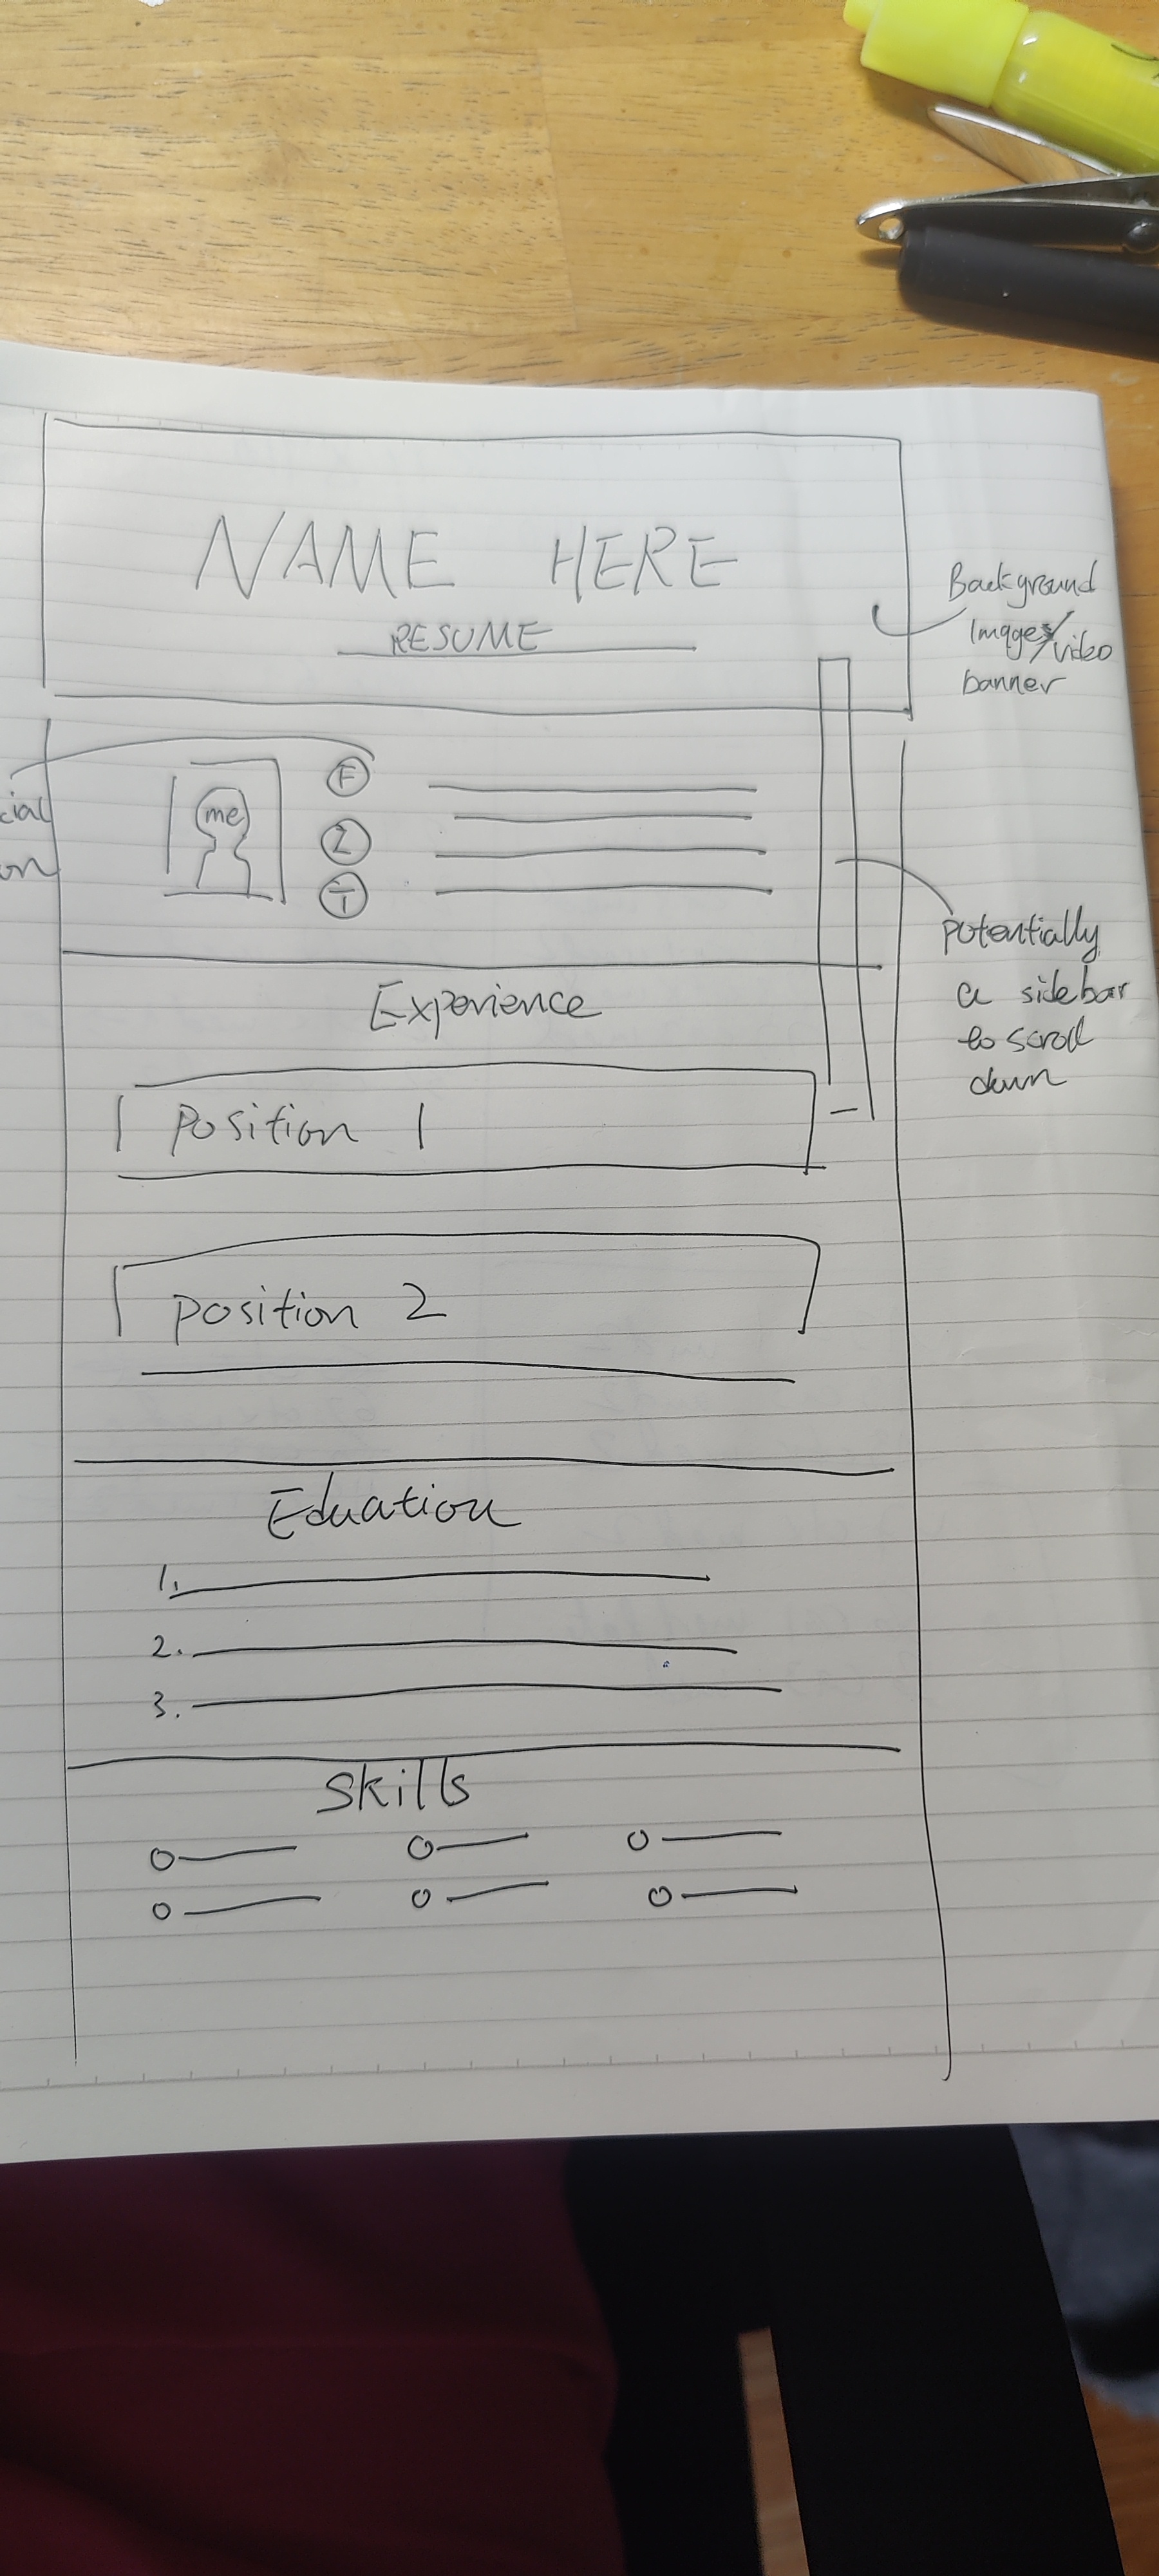 NAME HERE
RESUME
Background
Images/video
banner
F
me
cial
on
I
T
potentially
a sidebar
to scroll
down
Experience
Position 1
position 2
Eduation
1.
2.
3.
Skills